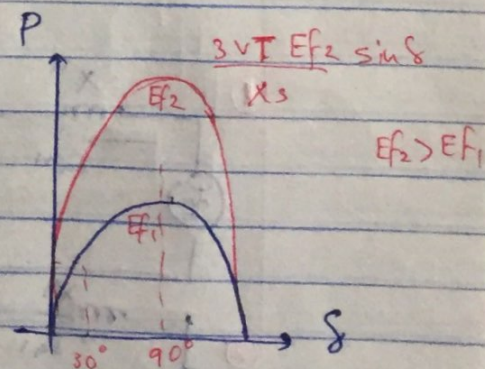 P
3 VT Ef2 sin δ
Xs
Ef2
Ef2 > Ef1
Ef1
δ
30° 90°